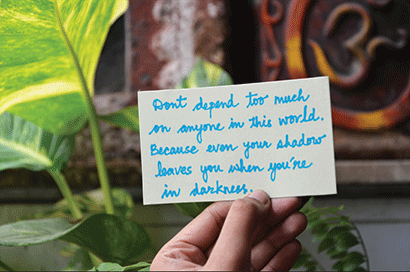 Dont depend too much
on anyone in this world.
Because even your shadow
leaves you when you're
in darkness.